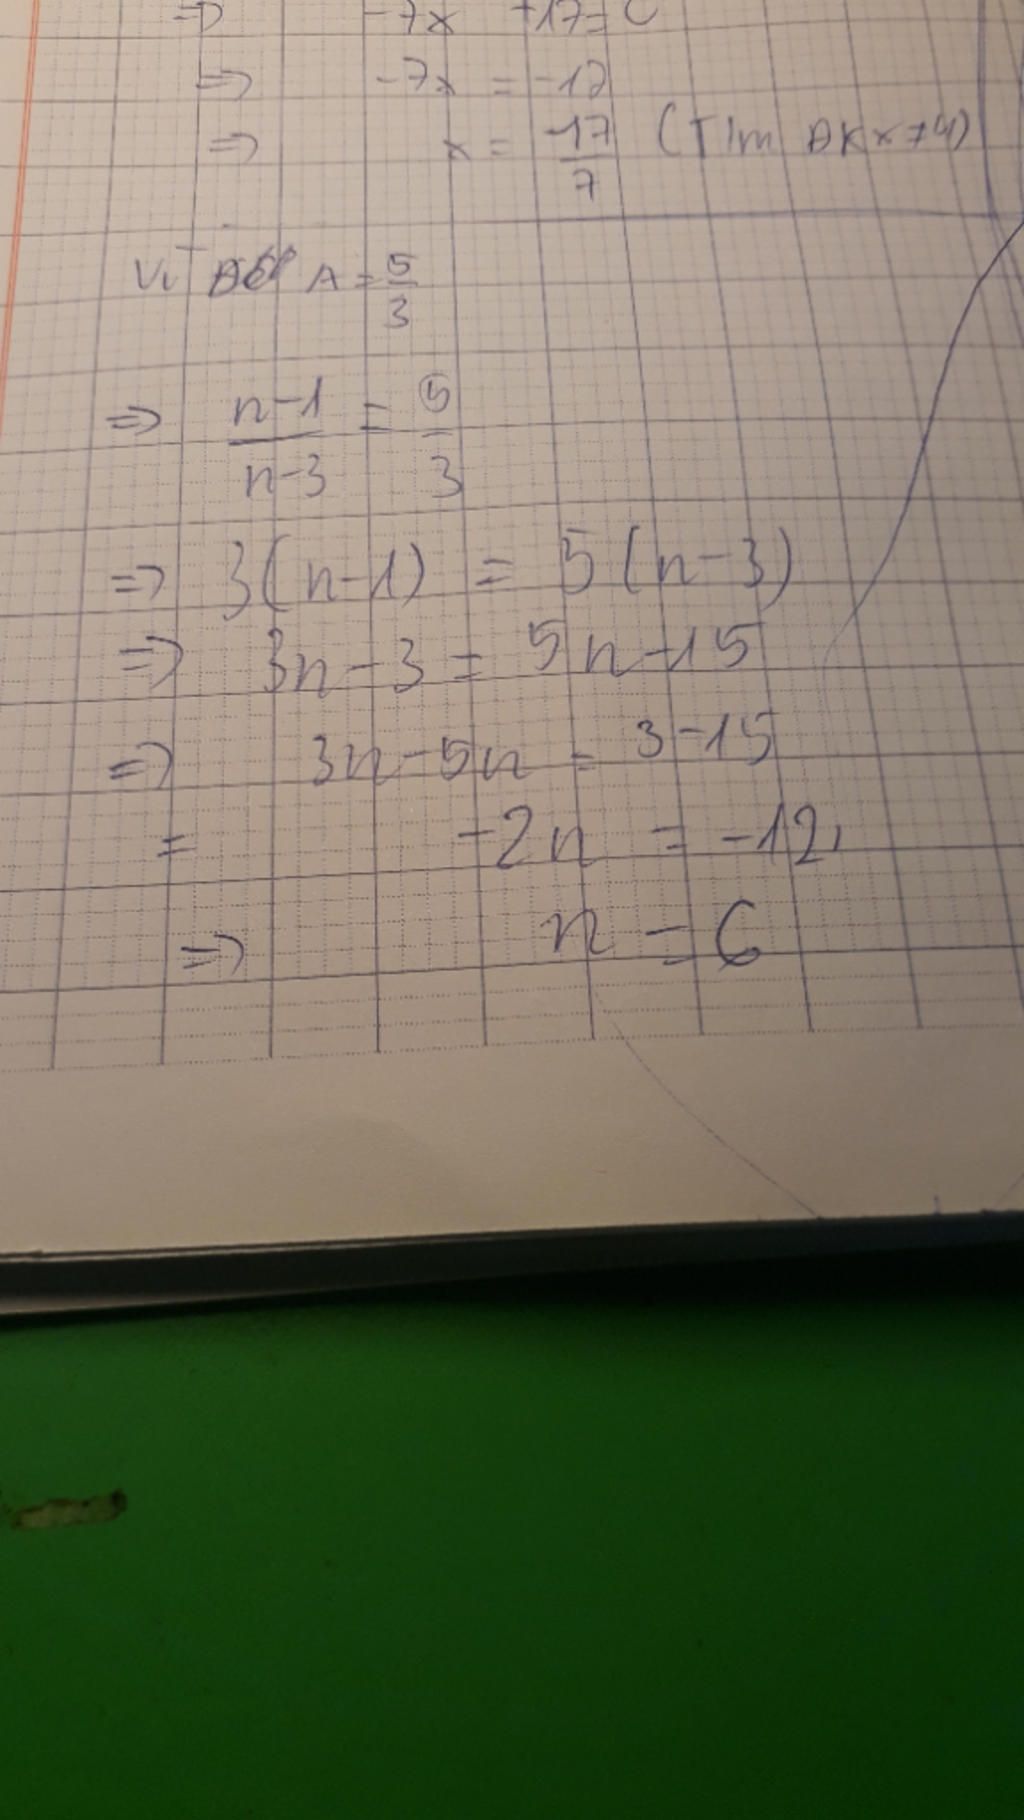 => -7x +17=0
=> -7x = -17
=> x = -17/7 (Tìm ĐK x≠4)
Vì A = 5/3
=> n-1/n-3 = 5/3
=> 3(n-1) = 5(n-3)
=> 3n-3 = 5n-15
=> 3n-5n = 3-15
= -2n = -12
=> n = 6